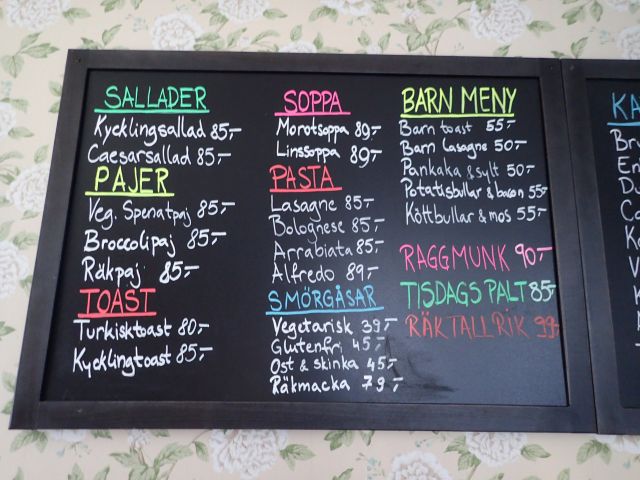 SALLADER
Kycklingsallad 85:-
Caesarsallad 85:-
PAJER
Veg. Spenatpaj 85:-
Broccolipaj 85:-
Räkpaj 85:-
TOAST
Turkisktoast 80:-
Kycklingtoast 85:-
SOPPA
Morotsoppa 89:-
Linssoppa 89:-
PASTA
Lasagne 85:-
Bolognese 85:-
Arrabiata 85:-
Alfredo 89:-
SMÖRGÅSAR
Vegetarisk 39:-
Glutenfri 45:-
Ost & skinka 45:-
Räkmacka 79:-
BARN MENY
Barn toast 55:-
Barn Lasagne 50:-
Pankaka & sylt 50:-
Potatisbullar & bacon 55:-
Köttbullar & mos 55:-
RAGGMUNK 90:-
TISDAGS PALT 85:-
RÄKTALLRIK 99:-